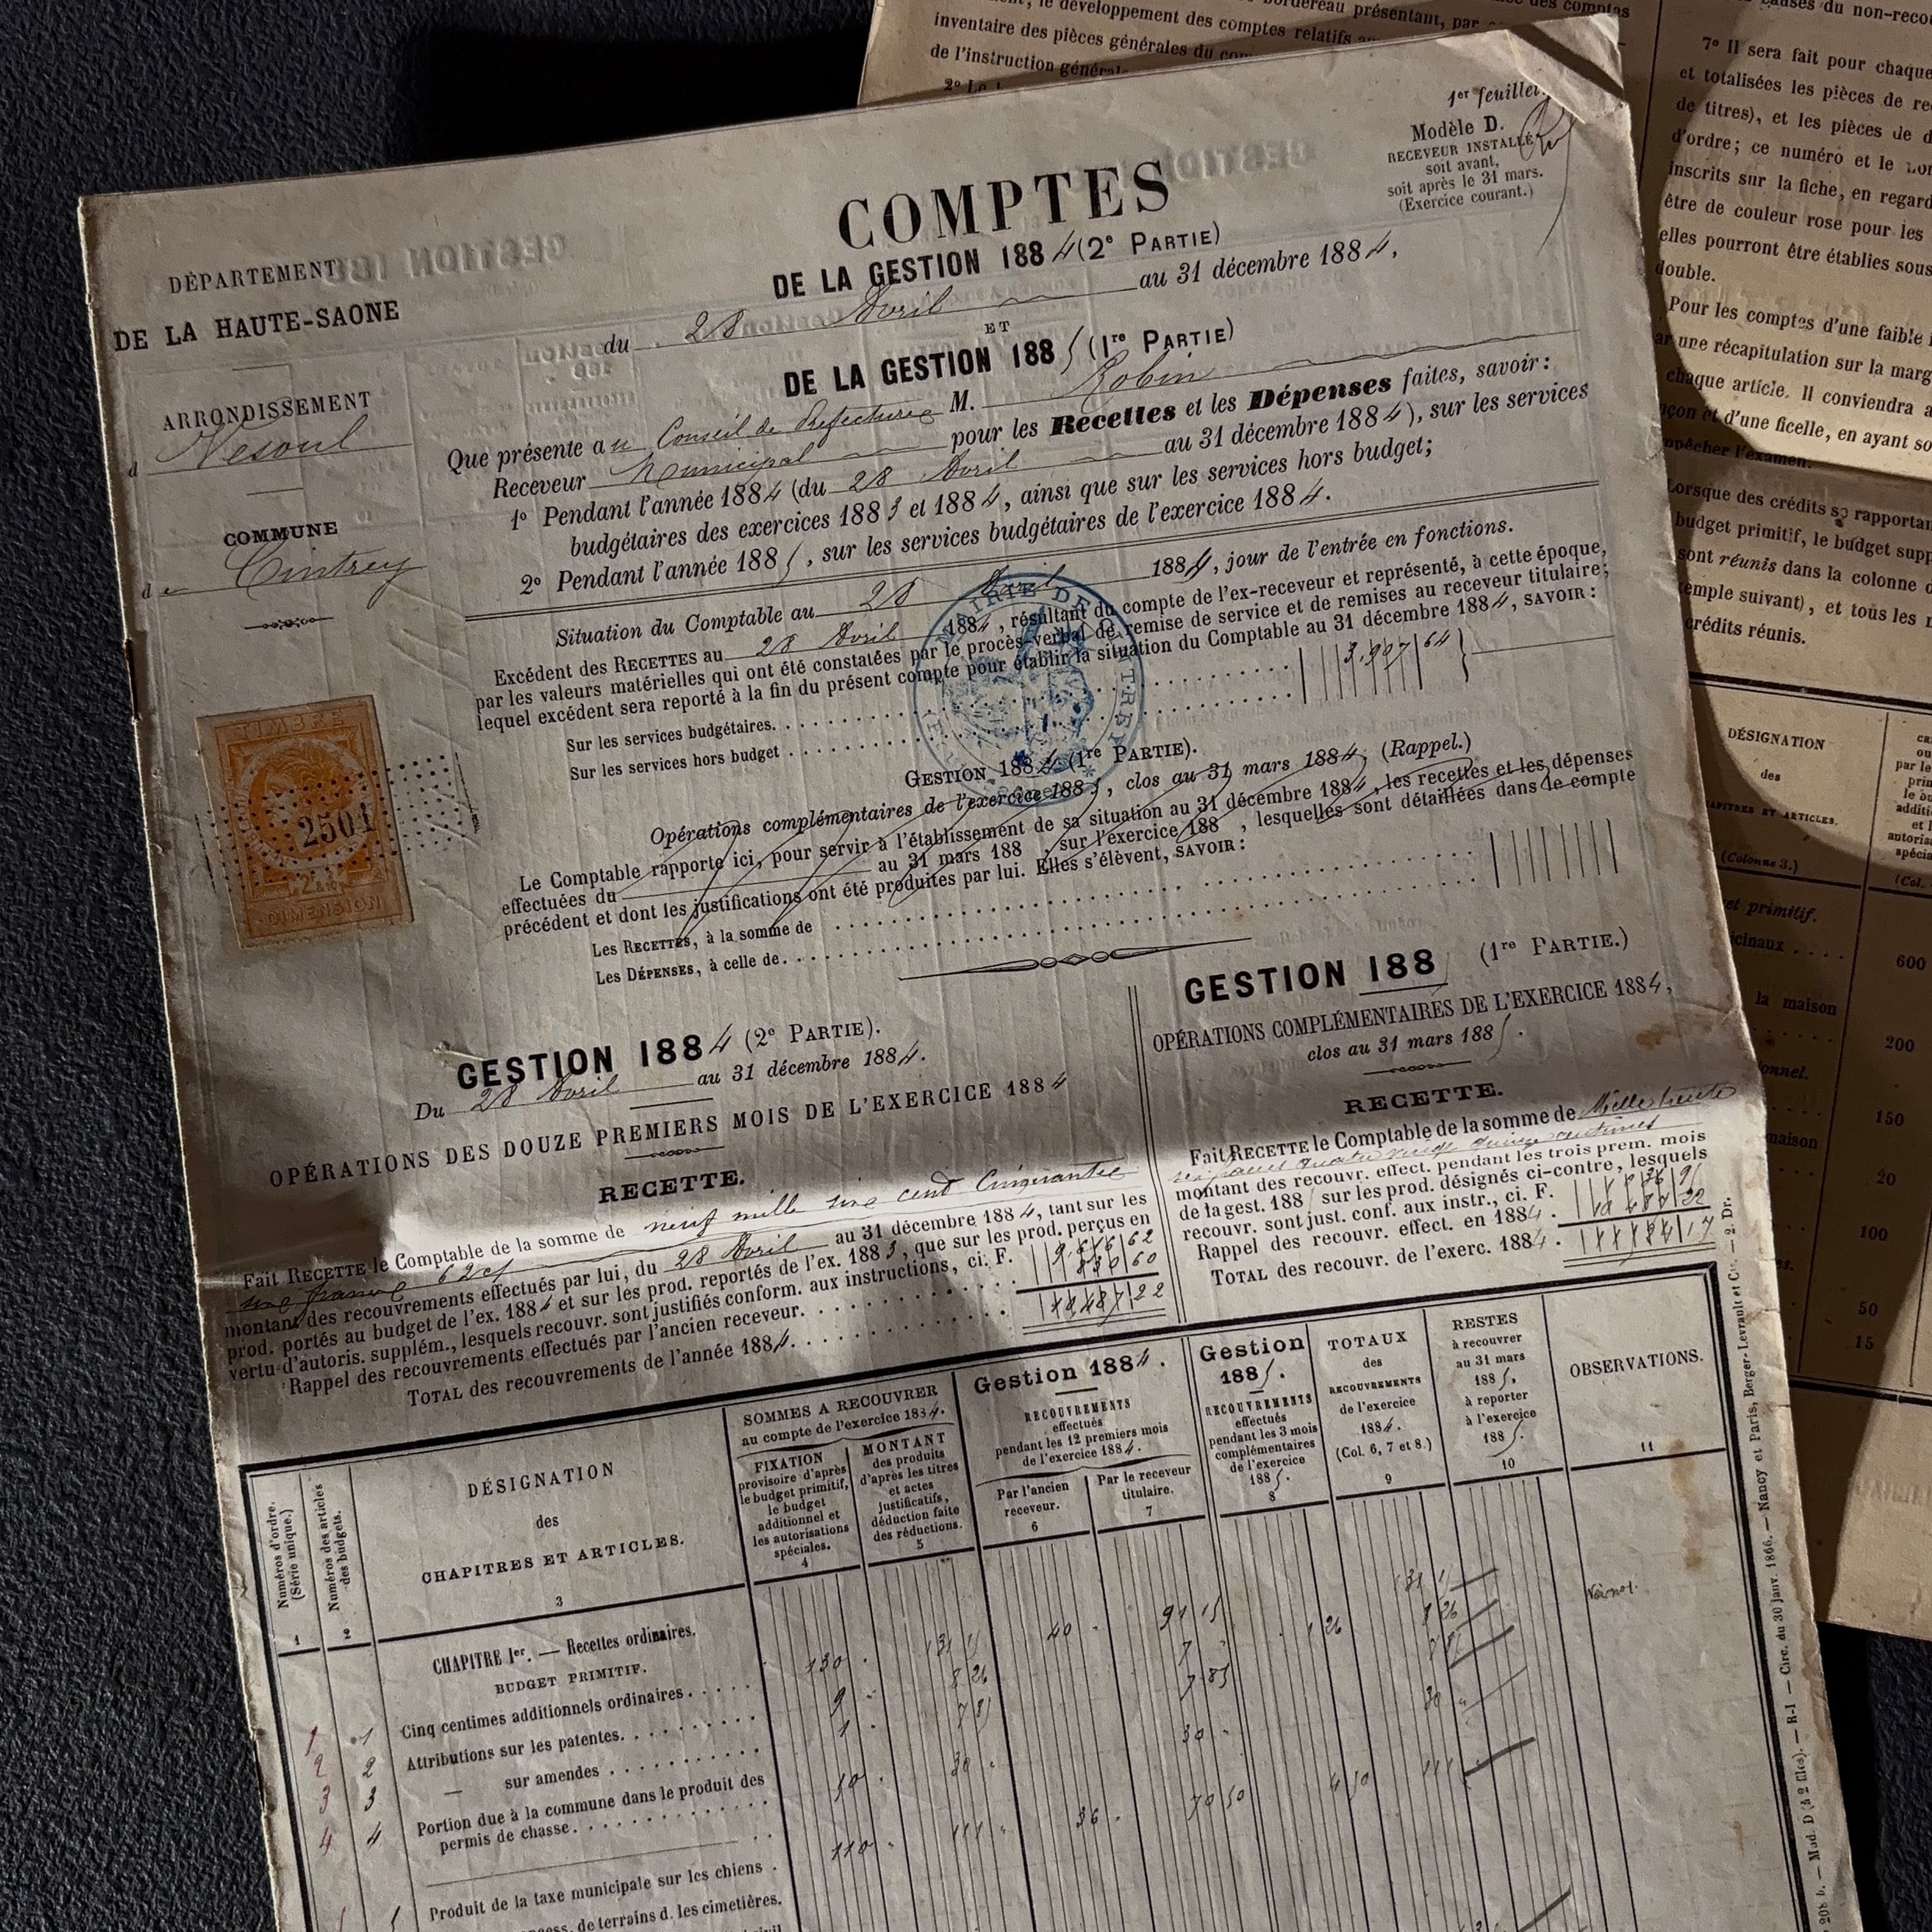 1er feuillet
Modèle D.
RECEVEUR INSTALLÉ
soit avant,
soit après le 31 mars.
(Exercice courant.)
COMPTES
DE LA GESTION 1884 (2e PARTIE)
du 28 Avril au 31 décembre 1884,
ET
DE LA GESTION 1885 (1re PARTIE)
DÉPARTEMENT
DE LA HAUTE-SAONE
ARRONDISSEMENT
d Vesoul
COMMUNE
de Cintrey
Que présente au Conseil de Préfecture M. Robin
Receveur Municipal pour les Recettes et les Dépenses faites, savoir :
1o Pendant l'année 1884 (du 28 Avril au 31 décembre 1884), sur les services
budgétaires des exercices 1883 et 1884, ainsi que sur les services hors budget;
2o Pendant l'année 1885, sur les services budgétaires de l'exercice 1884.
Situation du Comptable au 28 Avril 1884, jour de l'entrée en fonctions.
Excédent des RECETTES au 28 Avril 1884, résultant du compte de l'ex-receveur et représenté, à cette époque,
par les valeurs matérielles qui ont été constatées par le procès-verbal de remise de service et de remises au receveur titulaire;
lequel excédent sera reporté à la fin du présent compte pour établir la situation du Comptable au 31 décembre 1884, SAVOIR :
Sur les services budgétaires. 3.907 64
Sur les services hors budget
MAIRIE DE CINTREY
TIMBRE
2501
DIMENSION
GESTION 1884 (1re PARTIE).
Opérations complémentaires de l'exercice 1883, clos au 31 mars 1884, (Rappel.)
Le Comptable rapporte ici, pour servir à l'établissement de sa situation au 31 décembre 1884, les recettes et les dépenses
effectuées du au 31 mars 188 , sur l'exercice 188 , lesquelles sont détaillées dans le compte
précédent et dont les justifications ont été produites par lui. Elles s'élèvent, SAVOIR :
Les RECETTES, à la somme de
Les DÉPENSES, à celle de
GESTION 1884 (2e PARTIE).
Du 28 Avril au 31 décembre 1884.
OPÉRATIONS DES DOUZE PREMIERS MOIS DE L'EXERCICE 1884
RECETTE.
Fait RECETTE le Comptable de la somme de neuf mille six cent Cinquante
six francs 62c
montant des recouvrements effectués par lui, du 28 Avril au 31 décembre 1884, tant sur les
prod. portés au budget de l'ex. 1884 et sur les prod. reportés de l'ex. 1883, que sur les prod. perçus en
vertu d'autoris. supplém., lesquels recouvr. sont justifiés conform. aux instructions, ci. F.
Rappel des recouvrements effectués par l'ancien receveur. 830 60
TOTAL des recouvrements de l'année 1884. 10,487 22
GESTION 188 (1re PARTIE.)
OPÉRATIONS COMPLÉMENTAIRES DE L'EXERCICE 1884,
clos au 31 mars 1885.
RECETTE.
Fait RECETTE le Comptable de la somme de Mille trente
six francs quatre vingt quinze centimes
montant des recouvr. effect. pendant les trois prem. mois
de la gest. 188 sur les prod. désignés ci-contre, lesquels
recouvr. sont just. conf. aux instr., ci. F.
Rappel des recouvr. effect. en 1884.
TOTAL des recouvr. de l'exerc. 1884.
Numéros d'ordre. (Série unique.)
1
Numéros des articles des budgets.
2
DÉSIGNATION
des
CHAPITRES ET ARTICLES.
3
SOMMES A RECOUVRER
au compte de l'exercice 1884.
FIXATION
provisoire d'après
le budget primitif,
le budget
additionnel et
les autorisations
spéciales.
4
MONTANT
des produits
d'après les titres
et actes
justificatifs,
déduction faite
des réductions.
5
Gestion 1884.
RECOUVREMENTS
effectués
pendant les 12 premiers mois
de l'exercice 1884.
Par l'ancien
receveur.
6
Par le receveur
titulaire.
7
Gestion
1885.
RECOUVREMENTS
effectués
pendant les 3 mois
complémentaires
de l'exercice
1885.
8
TOTAUX
des
RECOUVREMENTS
de l'exercice
1884.
(Col. 6, 7 et 8.)
9
RESTES
à recouvrer
au 31 mars
1885,
à reporter
à l'exercice
1885.
10
OBSERVATIONS.
11
CHAPITRE Ier. — Recettes ordinaires.
BUDGET PRIMITIF.
1 1 Cinq centimes additionnels ordinaires 130 131 15 40 91 15
2 2 Attributions sur les patentes 9 8 26 7 1 26 8 26
3 3 — sur amendes 1 7 85 7 85 7 85
4 4 Portion due à la commune dans le produit des
permis de chasse 30 30 30
Produit de la taxe municipale sur les chiens 110 111 36 70 50 4 50 111
de terrains d. les cimetières.
Mod. D (à 2 files). — R-I — Circ. du 30 janv. 1866. — Nancy et Paris, Berger-Levrault et Cie. — 2. Dr.
le développement des comptes relatifs
bordereau présentant, par
des comptes
inventaire des pièces générales du
de l'instruction générale
du non-recou
7o Il sera fait pour chaque
et totalisées les pièces de
de titres), et les pièces de
d'ordre; ce numéro et le
inscrits sur la fiche, en regard
être de couleur rose pour les
elles pourront être établies sous
double.
Pour les comptes d'une faible
une récapitulation sur la marg
chaque article. Il conviendra
et d'une ficelle, en ayant
empêcher l'examen.
Lorsque des crédits se rapportan
budget primitif, le budget supp
sont réunis dans la colonne
exemple suivant), et tous les
crédits réunis.
DÉSIGNATION
des
CHAPITRES ET ARTICLES.
(Colonne 3.)
(Col.
primitif.
600
la maison
200
150
maison
20
100
50
15